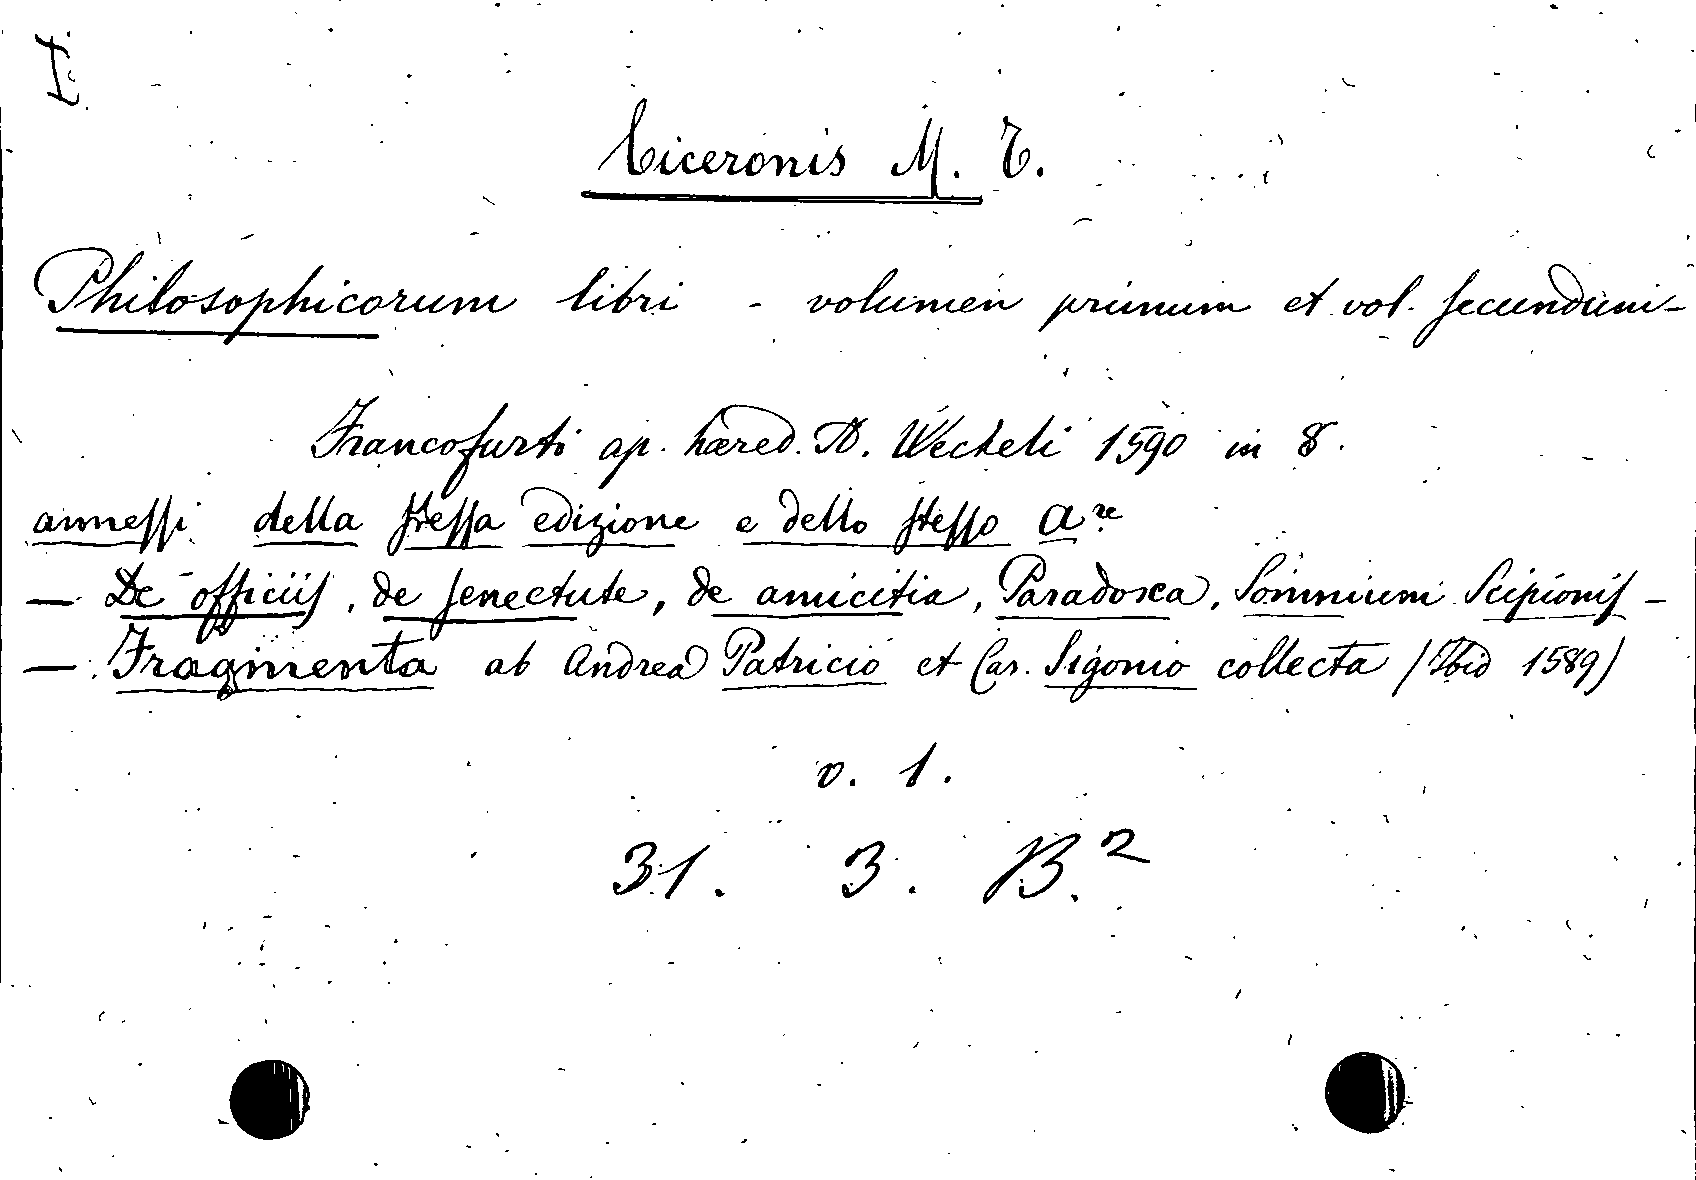 I
Ciceronis M. T.
Philosophicorum libri - volumen primum et vol. secundum -
Francofurti ap. hæred. A. Wecheli 1590 in 8.
annessi della stessa edizione e dello stesso are
— De officiis, de senectute, de amicitia, Paradoxa, Somnium Scipionis -
— Fragmenta ab Andrea Patricio et Car. Sigonio collecta (Ibid 1589)
v. 1.
31. 3. B.2